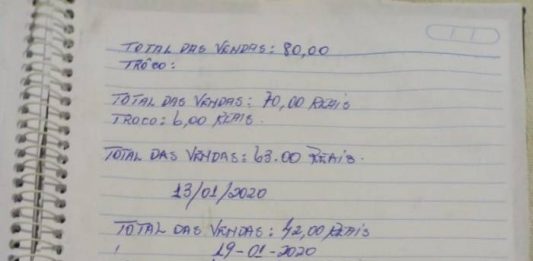 TOTAL DAS VENDAS: 80,00
TRÔCO:
TOTAL DAS VENDAS: 70,00 REAIS
TROCO: 6,00 REAIS.
TOTAL DAS VENDAS: 63.00 REAIS.
13/01/2020
TOTAL DAS VENDAS: 42,00 REAIS
19-01-2020